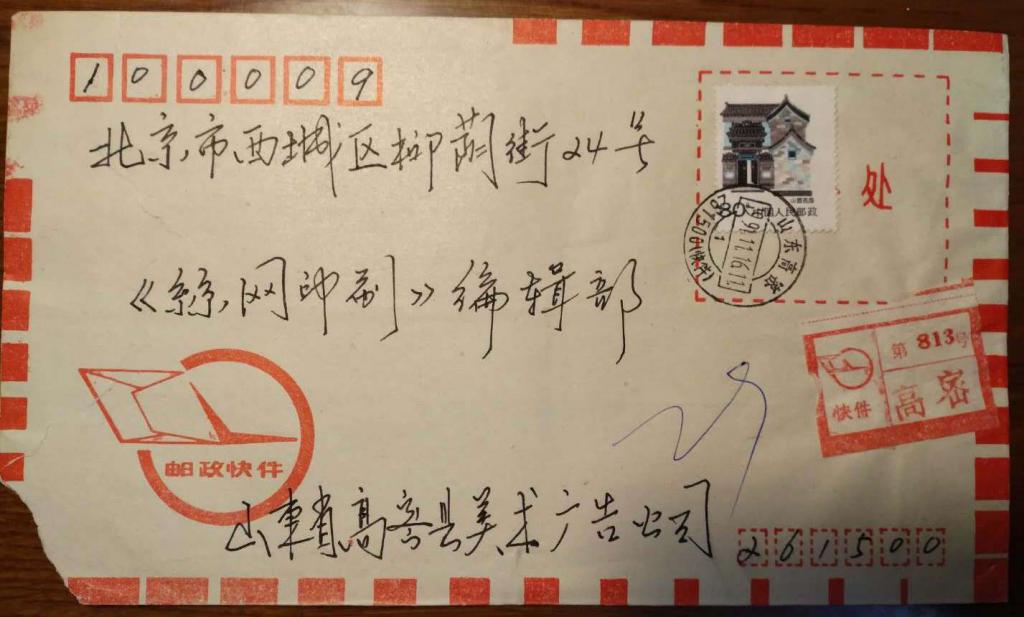 100009
北京市西城区柳荫街24号
《絲网印刷》编辑部
处
山西民居
80 中国人民邮政
山东高密
261500(快件)
第 813 号
快件
高密
邮政快件
山東省高密县美术广告公司
261500